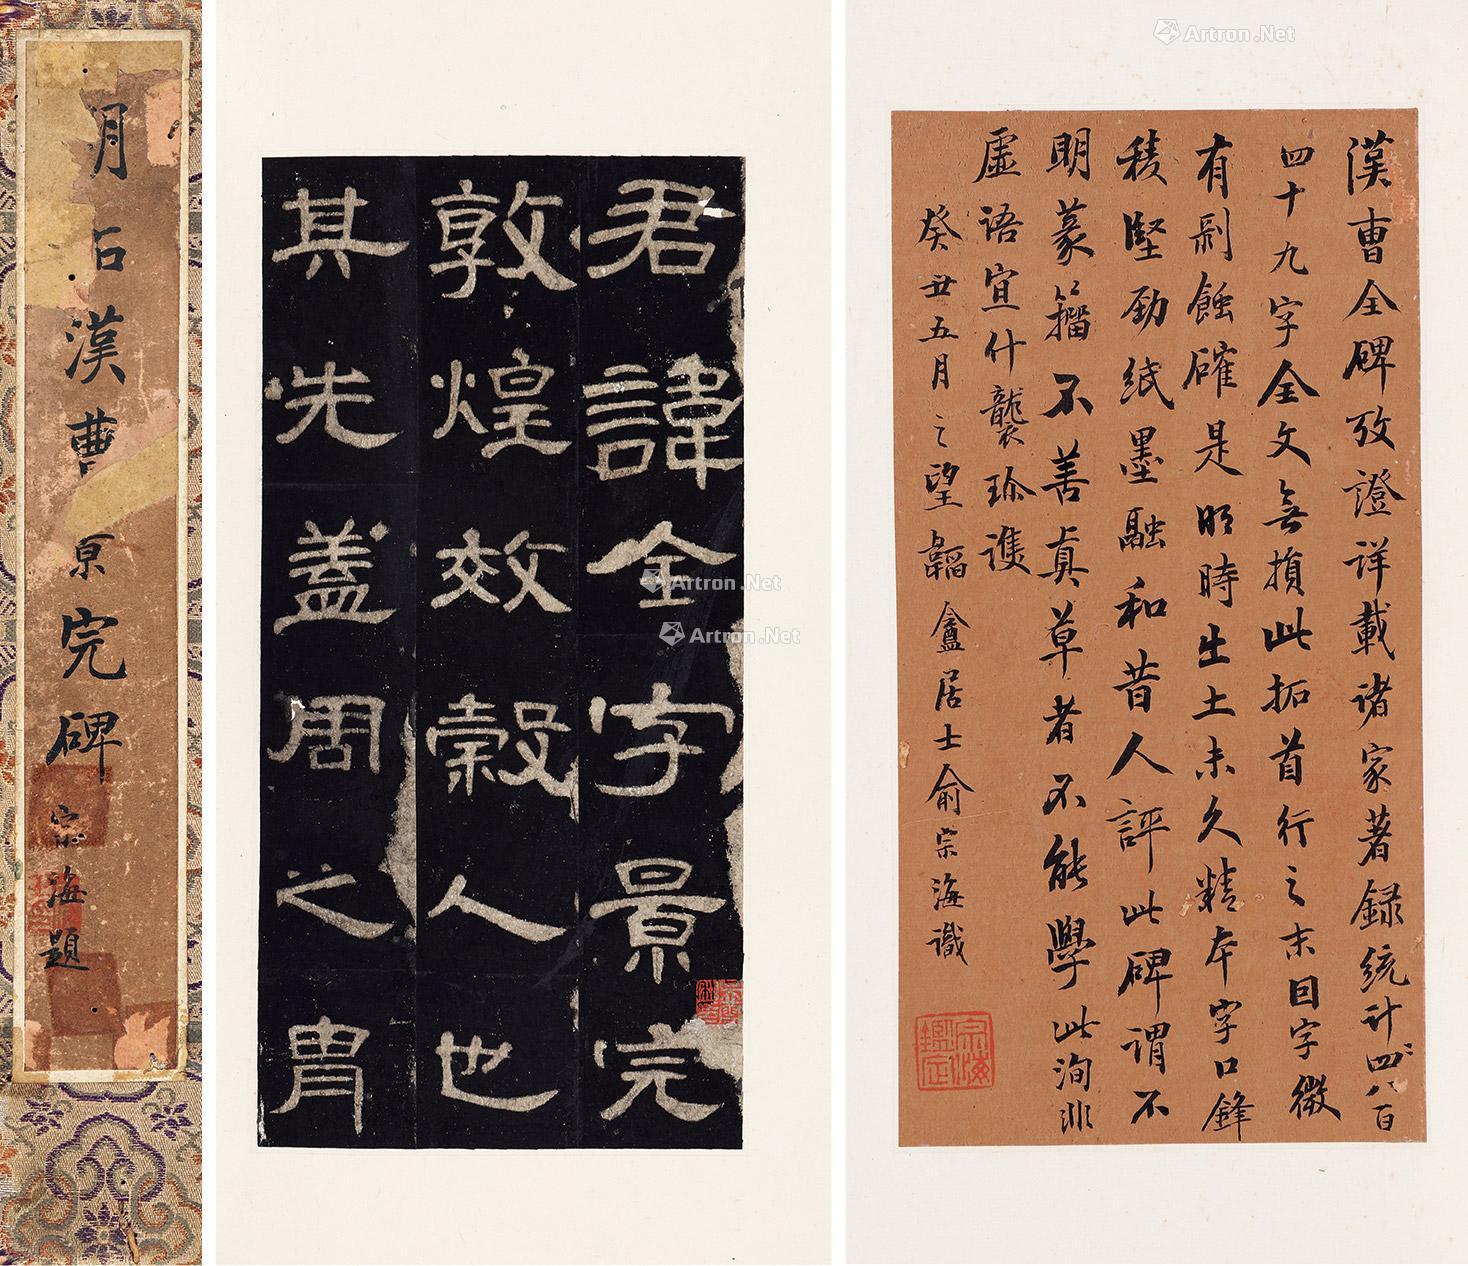 明拓漢曹景完碑
宗海題
君諱全字景完
敦煌效穀人也
其先蓋周之胄
漢曹全碑攷證詳載諸家著録統計四八百
四十九字全文無損此拓首行之末因字微
有剝蝕確是明時出土未久精本字口鋒
稜堅勁紙墨融和昔人評此碑謂不
明篆籀不善真草者不能學此洵非
虛語宜什襲珍護
癸丑五月之望韜盦居士俞宗海識
宗海鑑定
Artron.Net
Artron.Net
Artron.Net